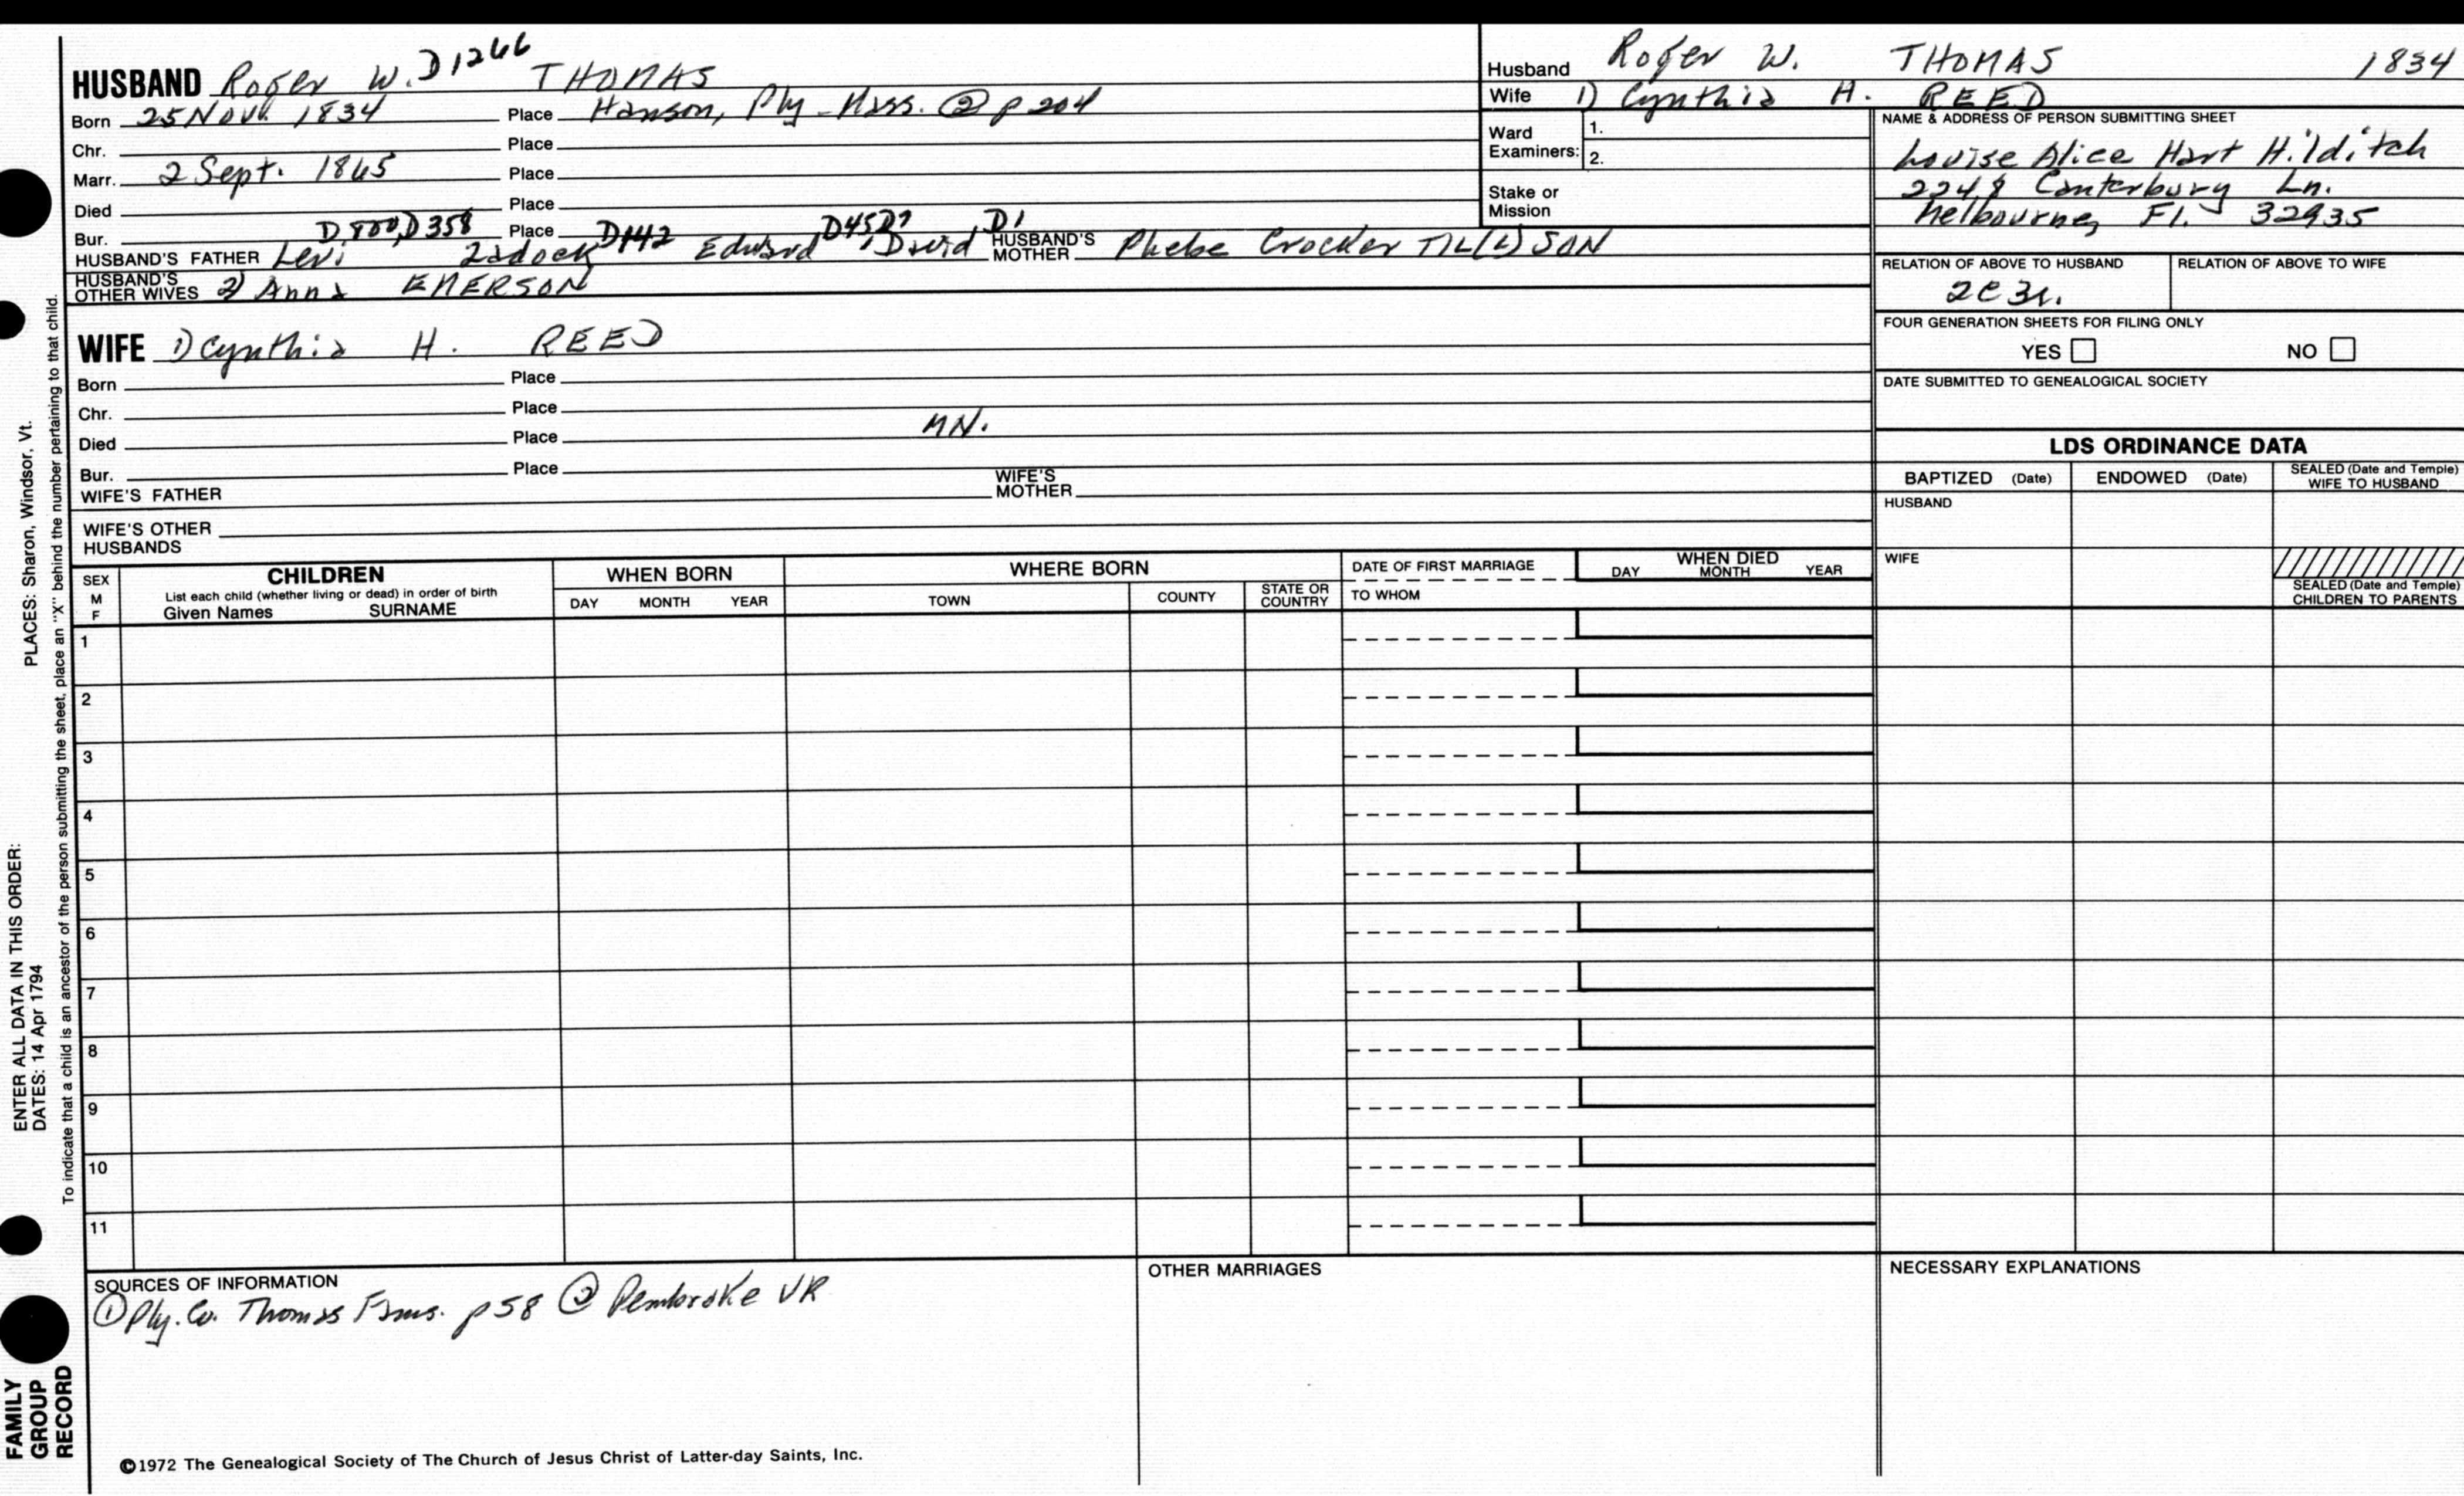 HUSBAND Roger W. D1266 THOMAS
Born 25 Nov. 1834 Place Hanson, Ply - Mass. ② p 204
Chr. Place
Marr. 2 Sept. 1865 Place
Died Place
Bur. Place
D800, D358 D142 D45 D7, D1
HUSBAND'S FATHER Levi Zadock Edward, David HUSBAND'S MOTHER Phebe Crocker TIL(L)SON
HUSBAND'S OTHER WIVES 2) Anna EMERSON
WIFE 1) Cynthia H. REED
Born Place
Chr. Place
Died Place MN.
Bur. Place
WIFE'S FATHER WIFE'S MOTHER
WIFE'S OTHER HUSBANDS
Husband Roger W. THOMAS 1834
Wife 1) Cynthia H. REED
Ward Examiners: 1.
2.
Stake or Mission
NAME & ADDRESS OF PERSON SUBMITTING SHEET
Louise Alice Hart Hilditch
2248 Canterbury Ln.
Melbourne, Fl. 32935
RELATION OF ABOVE TO HUSBAND RELATION OF ABOVE TO WIFE
2c3r.
FOUR GENERATION SHEETS FOR FILING ONLY
YES NO
DATE SUBMITTED TO GENEALOGICAL SOCIETY
LDS ORDINANCE DATA
BAPTIZED (Date) ENDOWED (Date) SEALED (Date and Temple) WIFE TO HUSBAND
HUSBAND
WIFE
SEALED (Date and Temple) CHILDREN TO PARENTS
SEX M F
CHILDREN
List each child (whether living or dead) in order of birth
Given Names SURNAME
WHEN BORN
DAY MONTH YEAR
WHERE BORN
TOWN COUNTY STATE OR COUNTRY
DATE OF FIRST MARRIAGE
TO WHOM
WHEN DIED
DAY MONTH YEAR
1
2
3
4
5
6
7
8
9
10
11
SOURCES OF INFORMATION
① Ply. Co. Thomas Fams. p58 ② Pembroke VR
OTHER MARRIAGES
NECESSARY EXPLANATIONS
©1972 The Genealogical Society of The Church of Jesus Christ of Latter-day Saints, Inc.
FAMILY GROUP RECORD
ENTER ALL DATA IN THIS ORDER:
DATES: 14 Apr 1794
PLACES: Sharon, Windsor, Vt.
To indicate that a child is an ancestor of the person submitting the sheet, place an "X" behind the number pertaining to that child.